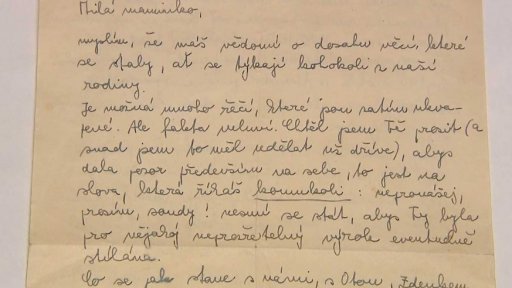 Milá maminko,
myslím, že máš vědomí o dosahu věcí, které
se staly, ať se týkají kohokoli z naší
rodiny.
Je možná mnoho řečí, které jsou zatím ukva-
pené. Ale fakta mluví. Chtěl jsem Tě prosit (a
snad jsem to měl udělat už dříve), abys
dala pozor především na sebe, to jest na
slova, která říkáš komukoli: nepronášej,
prosím, soudy! nesmí se stát, abys Ty byla
pro nějaký nepřátelský výrok eventuelně
stíhána.
Co se jak stane s námi, s Otou, Zdenkem